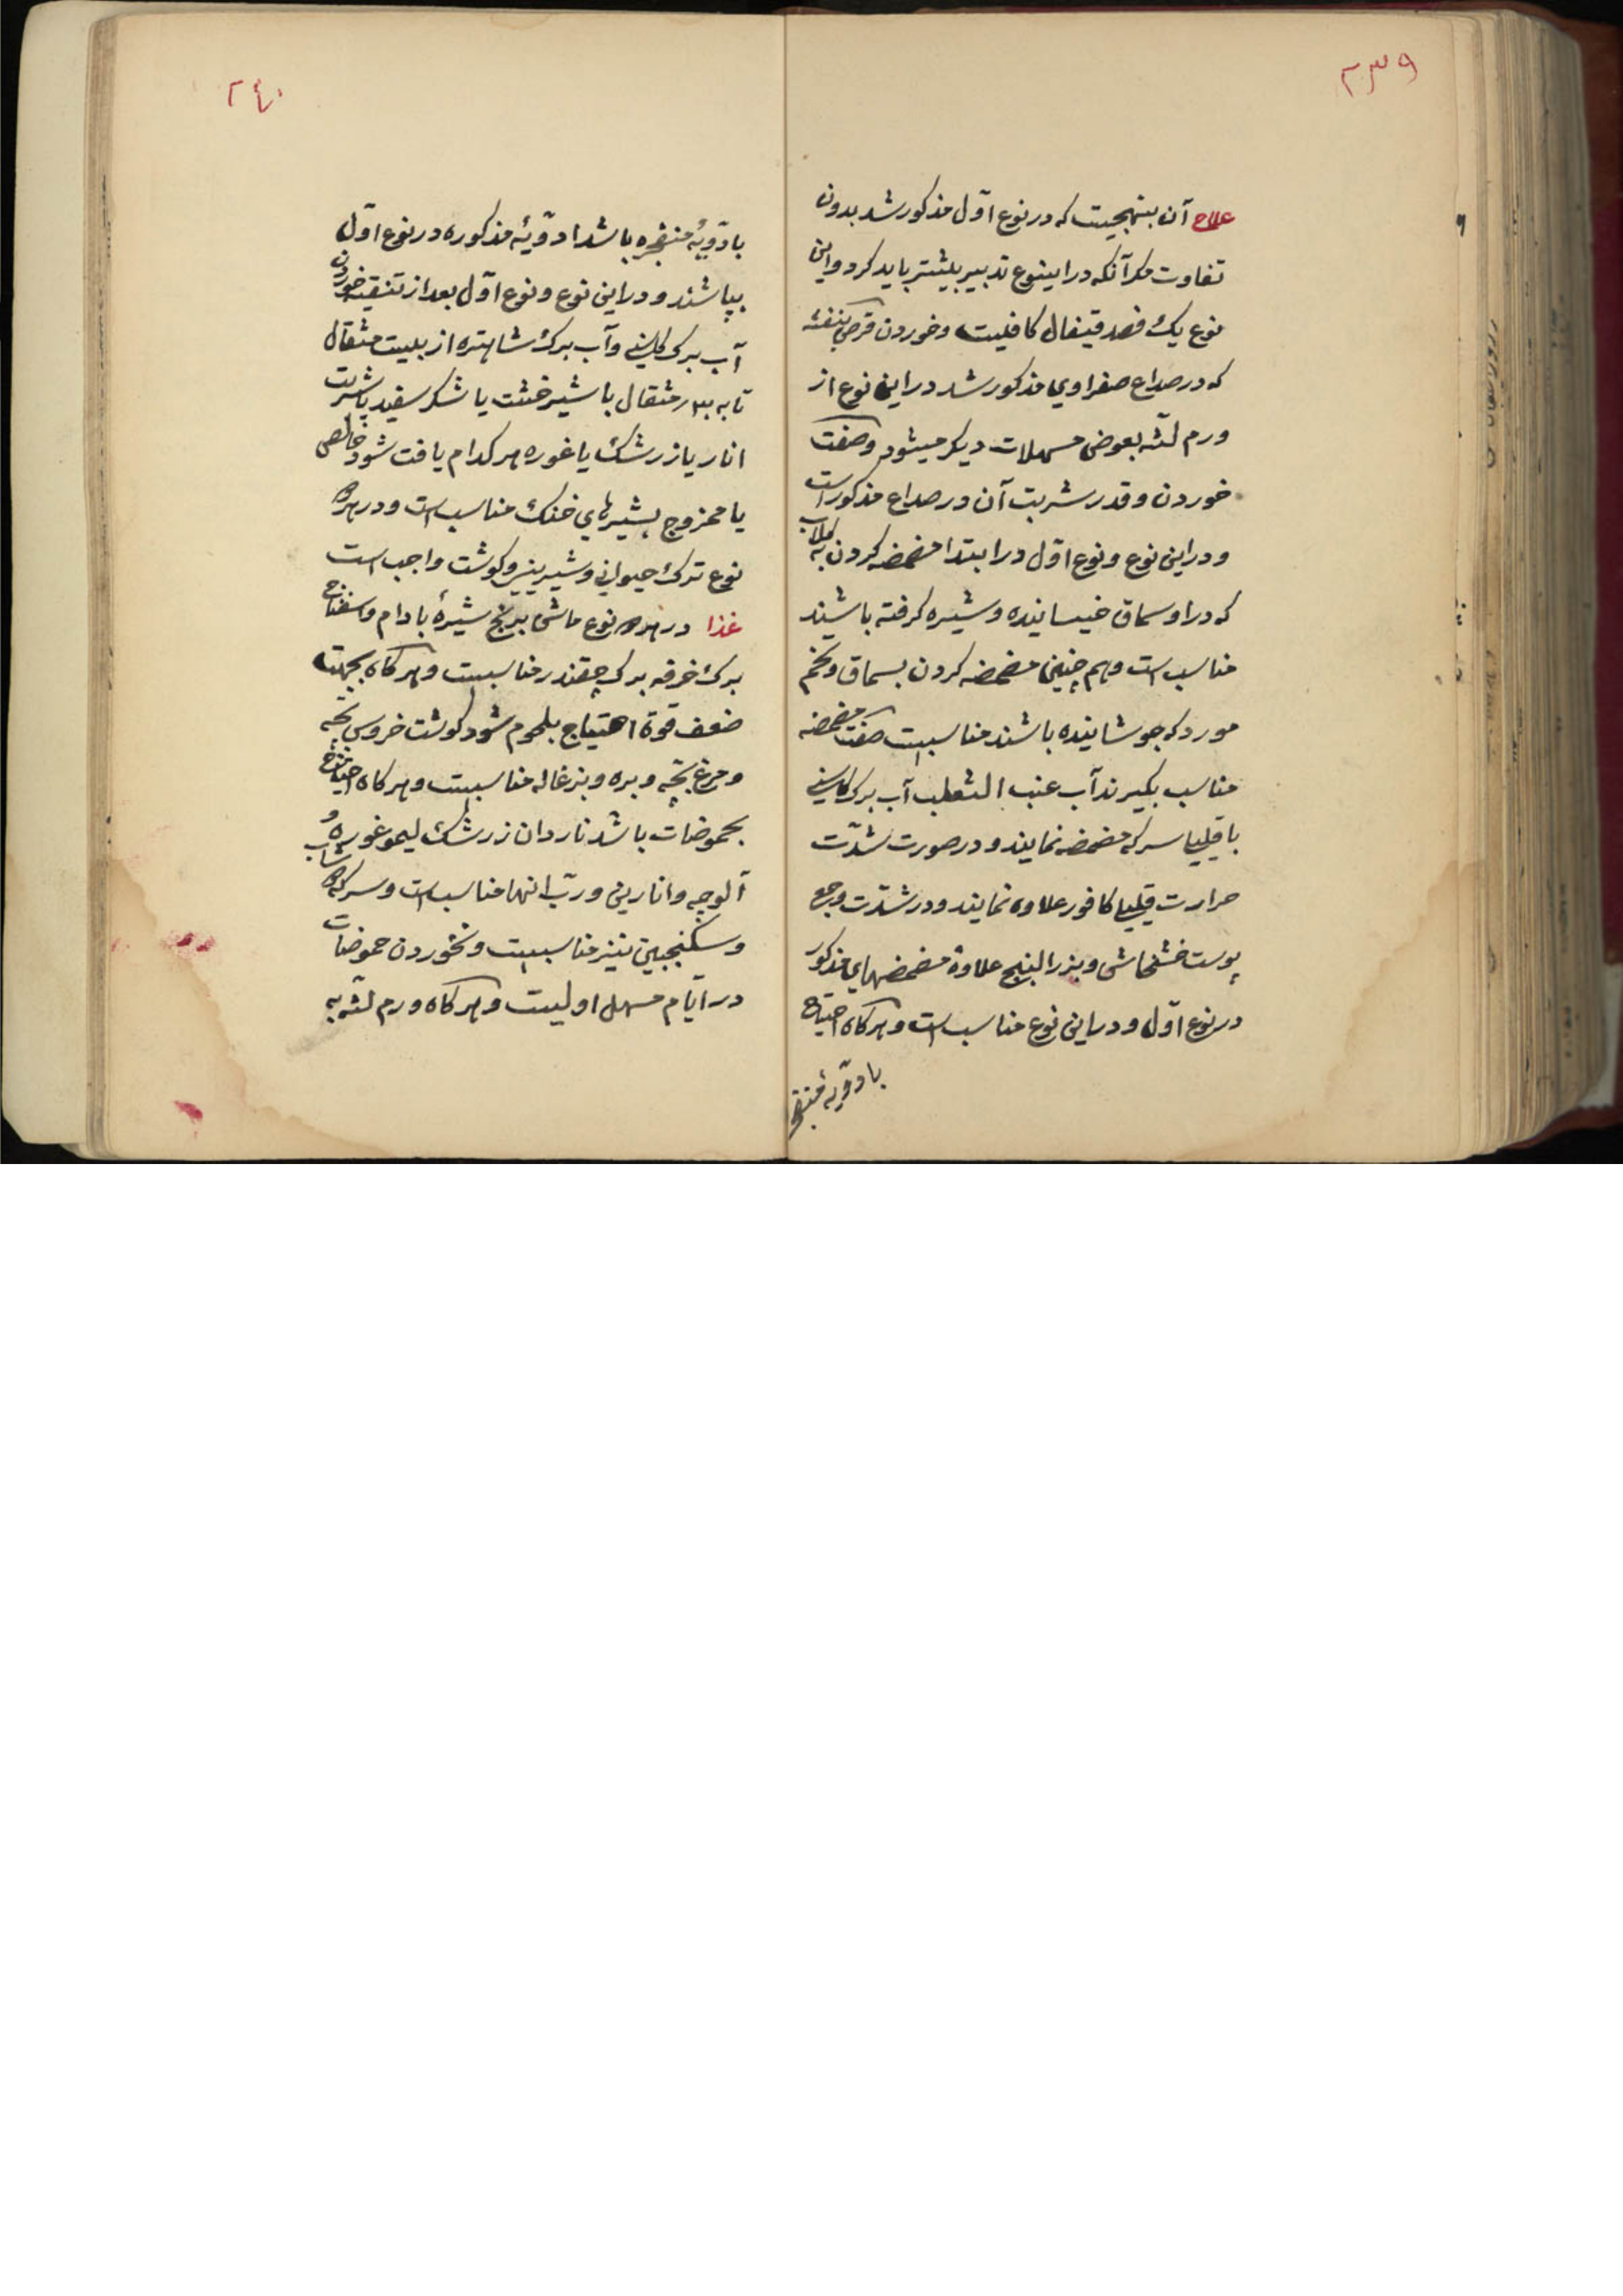 ۲۳۹
علاج آن بنهجیست که در نوع اوّل مذکور شد بدون
تفاوت مکر آنکه در اینوع تدبیر بیشتر باید کرد و این
نوع یک فصد قیفال کافیست وخوردن قرص بنفشه
که در صداع صفراوی مذکور شد در این نوع از
ورم لثه بعوض مسهلات دیکر میشود وصفت
خوردن وقدر شربت آن در صداع مذکور است
و در این نوع و نوع اوّل در ابتدا مضمضه کردن به کلاب
که در او سماق خیسانیده و شیره کرفته باشند
مناسب است وهم چنین مضمضه کردن بسماق و تخم
مورد که جوشانیده باشند مناسبست صفت مضمضه
مناسب بکیرند آب عنب الثعلب آب برک کاسنی
با قلیلی سرکه مضمضه نمایند و در صورت شدّت
حرارت قلیلی کافور علاوه نمایند و در شدّت وجع
پوست خشخاش و بزر البنج علاوهٔ مضمضهای مذکور
در نوع اوّل و در این نوع مناسب است و هر کاه احتیاج
بادویهٔ
۲۴۰
بادویهٔ منفجره باشد ادویهٔ مذکوره در نوع اوّل
بپاشند و در این نوع و نوع اوّل بعد از تنقیه خوردن
آب برک کاسنی وآب برک شاهتره از بیست مثقال
تا به مثقال با شیرخشت یا شکر سفید یا شربت
انار یا زرشک یا غوره هر کدام یافت شود خالص
یا ممزوج بشیرهای خنک مناسب است و در هر دو
نوع ترک حیوانی و شیرینی و کوشت واجب است
غذا در هر دو نوع ماش برنج شیرهٔ بادام و اسفناج
برک خرفه برک چقندر مناسبست وهر کاه بجهت
ضعف قوة احتیاج بلحوم شود کوشت خروس بچّه
و مرغ بچّه و بره و بزغاله مناسبست و هر کاه احتیاج
بحموضات باشد ناردان زرشک لیمو غوره و
آلوچه و انارین و ربّ انها مناسب است و سرکه
و سکنجبین نیز مناسبست و نخوردن حموضات
در ایّام مسهل اولیست و هر کاه ورم لثه به